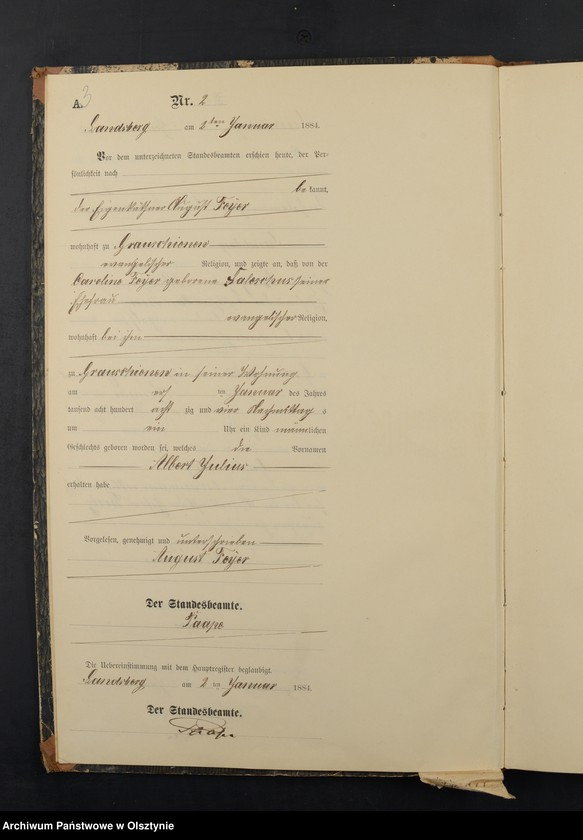 A. 3
Nr. 2
Landsberg am 2ten Januar 1884.
Vor dem unterzeichneten Standesbeamten erschien heute, der Per-
sönlichkeit nach
be kannt,
der Eigenkäthner August Feyer
wohnhaft zu
evangelischer Religion, und zeigte an, daß von der
Caroline Feyer geborene seiner
Ehefrau
evangelischer Religion,
wohnhaft bei ihm
zu in seiner Wohnung
am ten Januar des Jahres
tausend acht hundert acht zig und vier Nachmittag s
um ein Uhr ein Kind männlichen
Geschlechts geboren worden sei, welches die Vornamen
Albert Julius
erhalten habe
Vorgelesen, genehmigt und unterschrieben
August Feyer
Der Standesbeamte.
Paape
Die Uebereinstimmung mit dem Hauptregister beglaubigt.
Landsberg am 2 ten Januar 1884.
Der Standesbeamte.
Paape
Archiwum Państwowe w Olsztynie